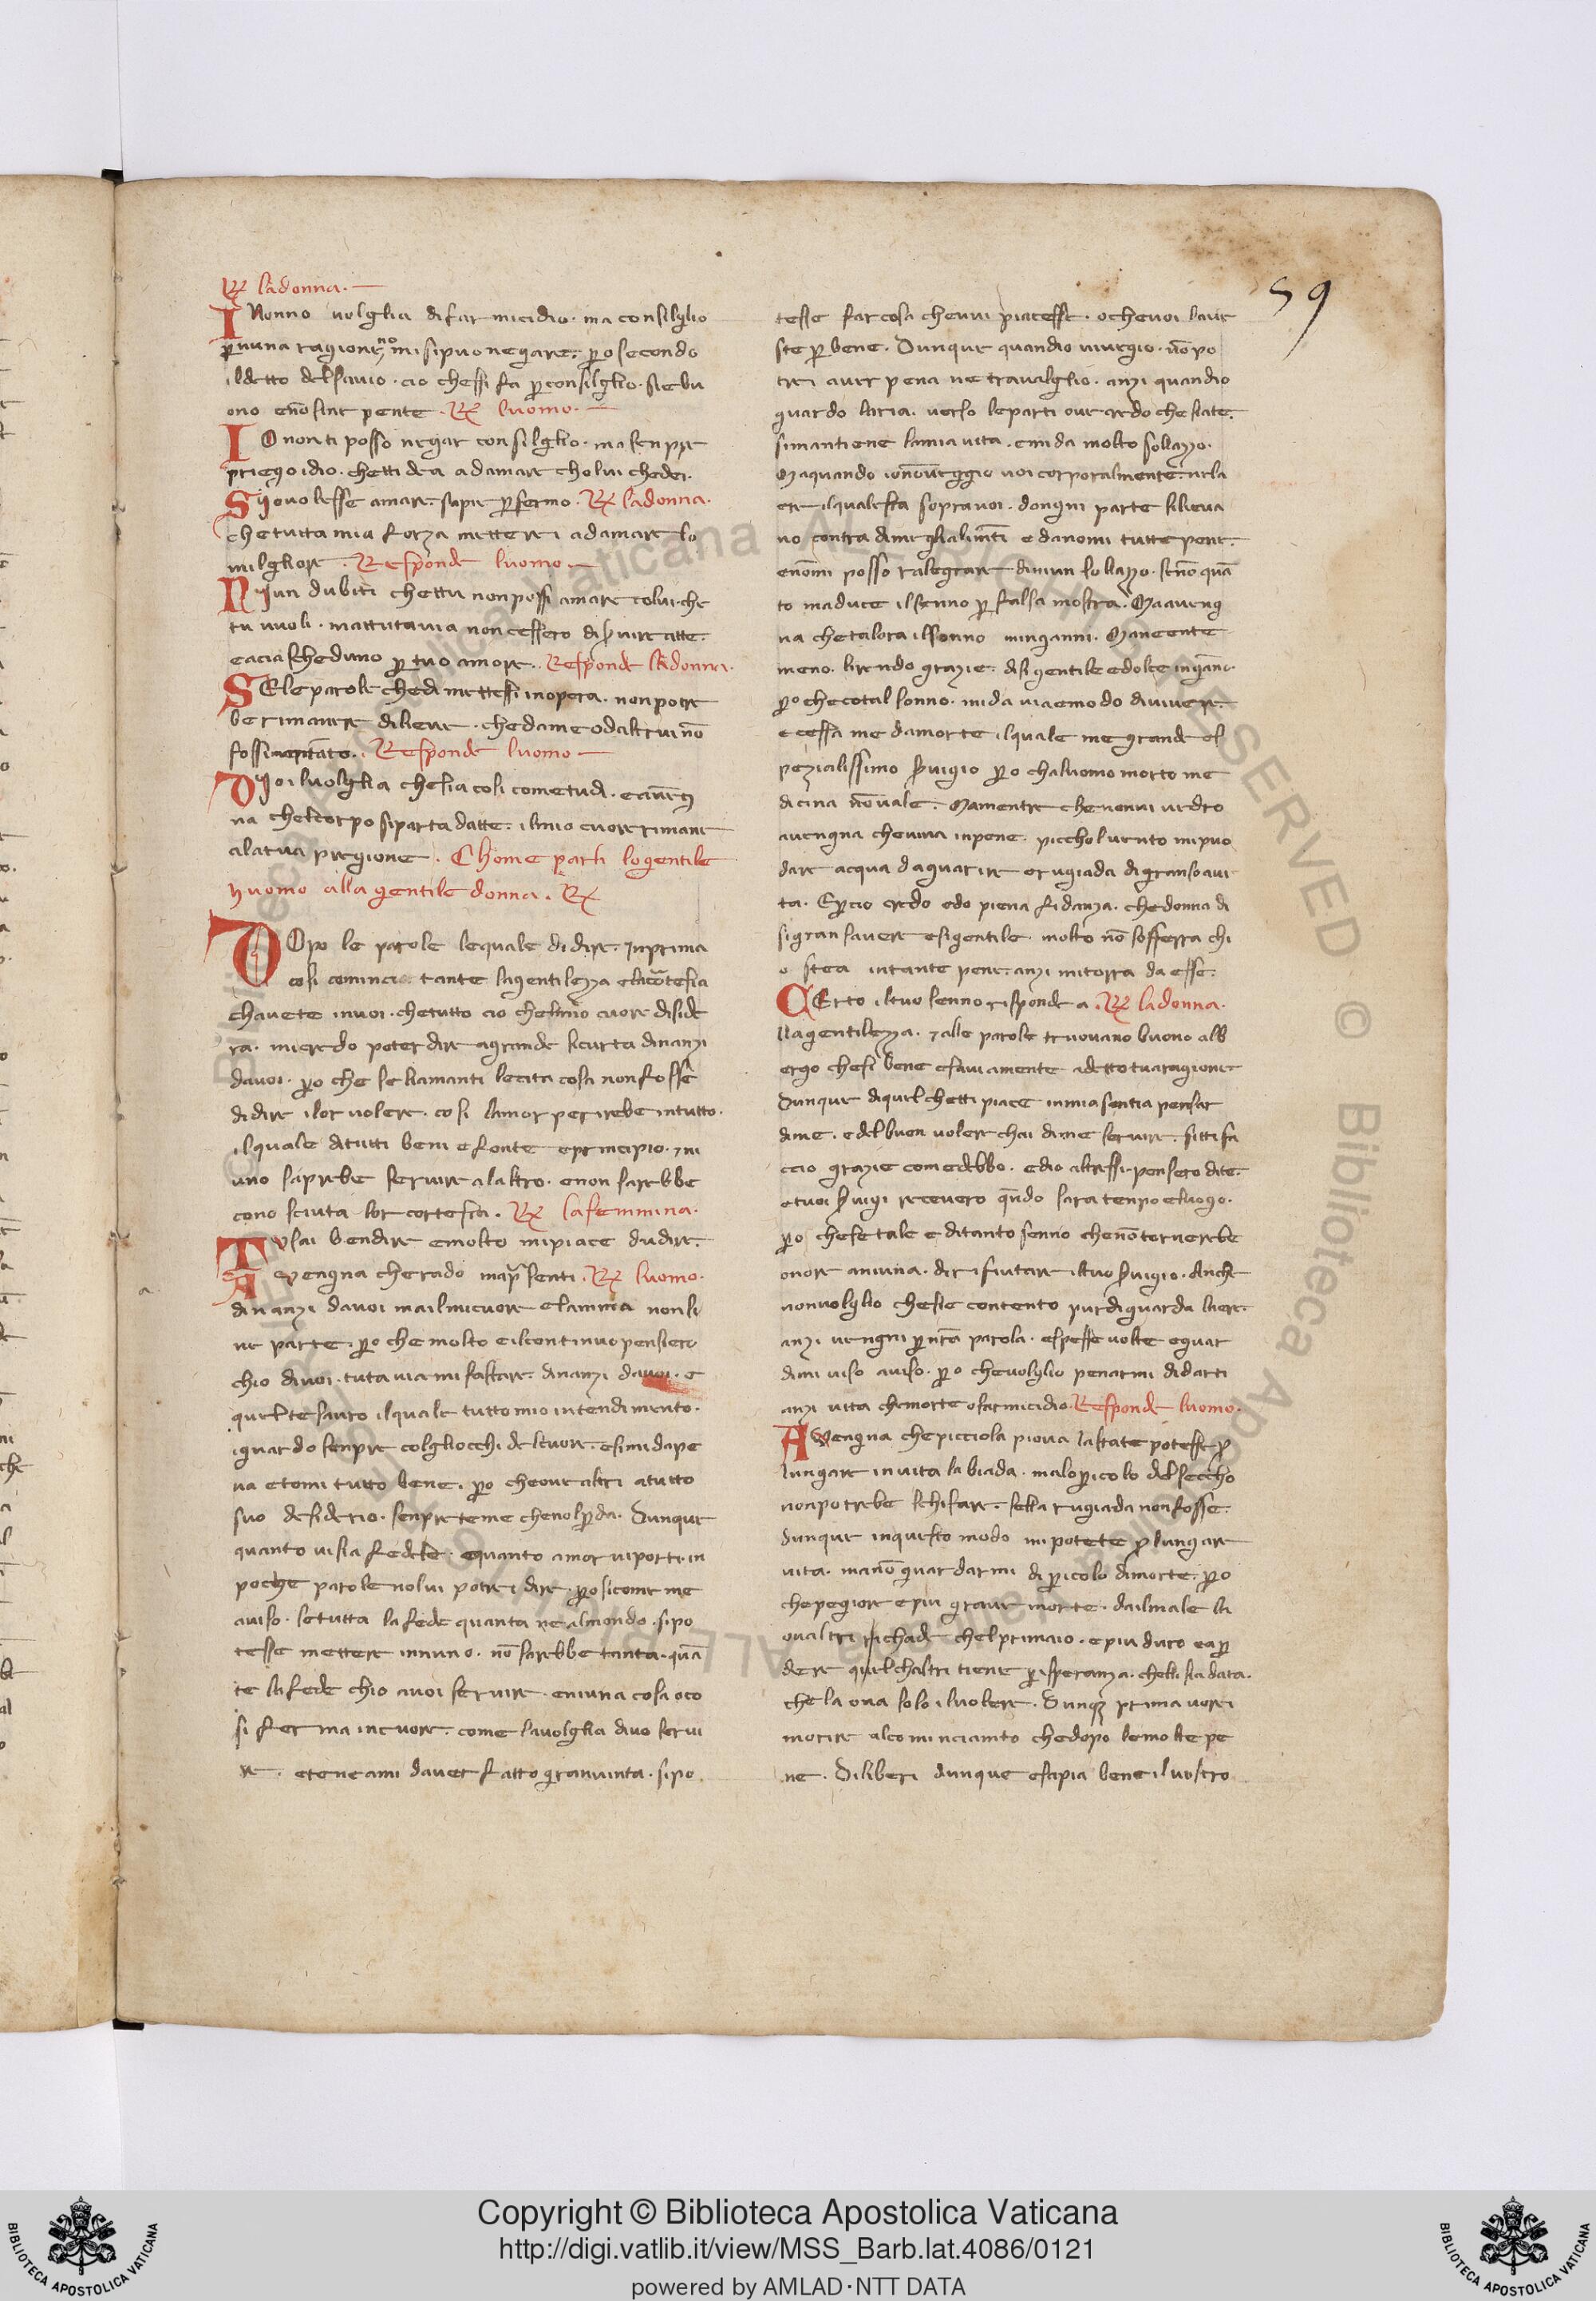 59
R ladonna.
INonno volglia difar micidio. ma consilglio
p nuna ragione no misipuo negare. po secondo
ildetto delsavio. cio chessi fa p consilglio. siebu
ono enō sene pente. R luomo.
IO nonti posso negar consilglio. ma senpre
priego idio. chetti dea adamare cholui chedei.
SYo volesse amare. sapie p fermo. R ladonna.
che tutta mia forza mettere i adamare lo
milgliore. Responde luomo
NYun dubiti chettu nonpossi amare colui che
tu vuoli. mattutavia non cessero di servire atte.
eacia scheduno p tuo amore. Responde ladonna.
SEle parole chedi mettessi inopera. nonpotre
be rimanere dilieve. chedame odaltrui nō
fossi meritato. Responde luomo
DYo iluolglia chesia cosi cometudi. eavēg
na chelcorpo siparta datte. ilmio cuore rimane
alatua pregione. Chome parti logentile
huomo alla gentile donna. R
DOpo le parole lequale didire. Inprima
cosi cominciae tante lagentilezza elacortesia
chavete invoi. chetutto cio chelmio cuore diside
ra. micredo poter dire agrande sicurta dinanzi
davoi. po che se liamanti lecita cosa nonfosse
didire ilor volere. cosi lamor perirebe intutto.
ilquale ditutti beni e fonte eprincipio. 7 ni
uno saprebe servire alaltro. enon sarebbe
cono sciuta lor cortesia. R lafemmina.
Tusai bendire emolto mipiace dudire.
Avengna cherado mapsenti. R luomo.
dinanzi davoi mailmicuore elanima nonsi
ne parte. po che molto eilcontinuo pensiero
chio divoi. tuta via mi fastare. dinanzi davoi. e
quel tesauro ilquale tutto mio intendimento.
iguardo senpre colgliocchi delcuore. esimi dape
na etomi tutto bene. po cheove altri atutto
suo desiderio. senpreteme chenolpda. Dunque
quanto visia fedele. equanto amor viporti. in
poche parole nolvi potrei dire. po sicome me
aviso. setutta la fede quanta ne almondo. sipo
tesse mettere innuno. nō sarebbe tanta. quā
te lafede chio avoi servire. eniuna cosa oco
si ferma incuore. come lavolglia divo servi
re. eteneami daver fatto granvinta. sipo
tesse far cosa chevvi piacesse. o chevoi lave
ste p bene. Dunque quandio viveggio. nō po
trei aver pena ne travalglio. anzi quandio
guardo laria. verso leparti ove credo che siate.
simantiene lamia vita. emi da molto sollazzo.
Maquando ionōveggio voi corporalmente. nela
ere ilquale sta sopravoi. dongni parte silieva
no contra dime glialimēti edanomi tutte pene.
enōmi posso ralegrare diniun sollazzo. senō quā
to maduce ilsenno p falsa mostra. Maaveng
na che talora ilsonno minganni. Maneente
meno. lirendo grazie. disi gentile edolce ingāno.
po checotal sonno. mida viaemodo divivere.
ecessa me damorte ilquale megrande es
pezialissimo servigio po chaluomo morto me
dicina nōvale. Mamentre chenonvi vedro
avengna cheviva inpene. picchol vento mipuo
dare acqua daguarire erugiada digransoavi
ta. Epcio credo edo piena fidanza. chedonna di
sigran savere esigentile. molto nō sofferra chi
o stea intante pene. anzi mitorra da esse.
CErto iltuo senno risponde a. R ladonna.
llagentilezza. 7 alle parole truovano buono alb
ergo chesi bene esaviamente adetto tuaragione
Dunque diquel chetti piace inmiasentia pensar
dime. edelbuen volere chai dime servire. sitti fa
ccio grazie comedebbo. edio altressi. pensero dite.
etuoi servigi recevero quādo sara tenpo eluogo.
po chese tale e ditanto senno chenōtorverebe
onore aniuna. dirifiutare iltuo servigio. Anche
nonvolglio chesie contento purdiguarda laere.
anzi vengni p nrā parola. espesse volte eguar
dimi viso aviso. po chevolglio penarmi didarti
anzi vita chemorte ofarmicidio. Responde luomo.
AVengna chepicciola piova lastate potesse p
lungare invita labiada. malopicolo delseccho
nonpotrebe schifare. sella rugiada nonfosse.
dunque inquesto modo mi potete plungare
vita. manō guardarmi di picolo dimorte. po
chepegiore epiu grave morte. dailmale la
ovaltri richade chelprimaio. epiu duro eap
dere quelchaltri tiene p isperanza. chelli sia data.
che la ova solo ilvolere. Dunq3 prima vorei
morire alcominciamēto chedopo lemolte pe
ne. Diliberi dunque esapia bene ilvostro